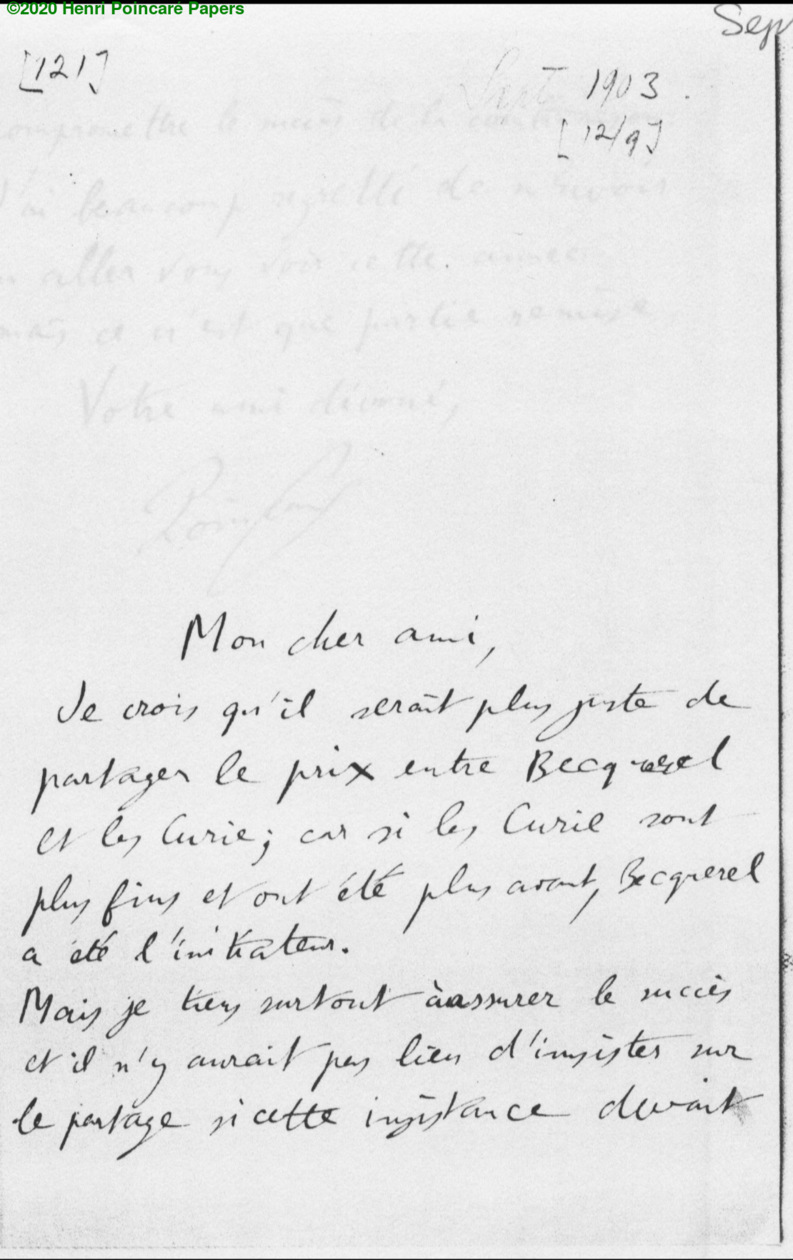 ©2020 Henri Poincaré Papers
Sep
[121]
Sept 1903.
[12/9]
compromettre le succès de la combinaison
J'ai beaucoup regretté de n'avoir
pu aller vous voir cette année
mais ce n'est que partie remise
Votre ami dévoué,
Poincaré
Mon cher ami,
Je crois qu'il serait plus juste de
partager le prix entre Becquerel
et les Curie; car si les Curie sont
plus fins et ont été plus avant, Becquerel
a été l'initiateur.
Mais je tiens surtout à assurer le succès
et il n'y aurait pas lieu d'insister sur
le partage si cette insistance devait